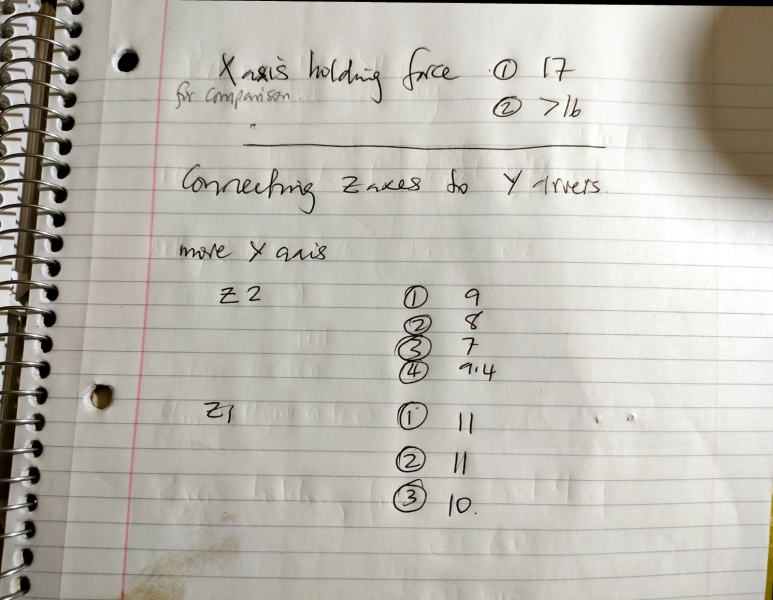 X axis holding force ① 17
for comparison ② >16
Connecting Z axes to Y drivers.
move Y axis
Z2 ① 9
② 8
③ 7
④ 9.4
Z1 ① 11
② 11
③ 10.